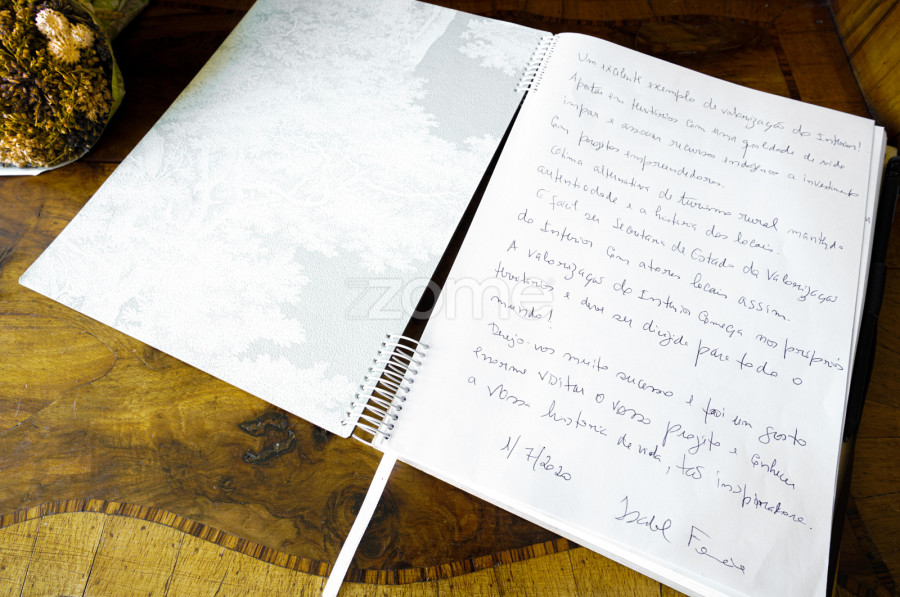 Um excelente exemplo de valorização do Interior!
Apostar em territórios com uma qualidade de vida
impar e associar recursos endógenos a investimento
com projetos empreendedores.
Ótima alternativa de turismo rural mantendo
autenticidade e a história dos locais.
É fácil ser Secretária de Estado da Valorização
do Interior com atores locais assim.
A valorização do Interior começa nos próprios
territórios e deve ser dirigida para todo o
mundo!
Desejo-vos muito sucesso e foi um gosto
enorme visitar o vosso projeto e conhecer
a vossa história de vida, tão inspiradora.
1/7/2020
Isabel Ferreira
zome